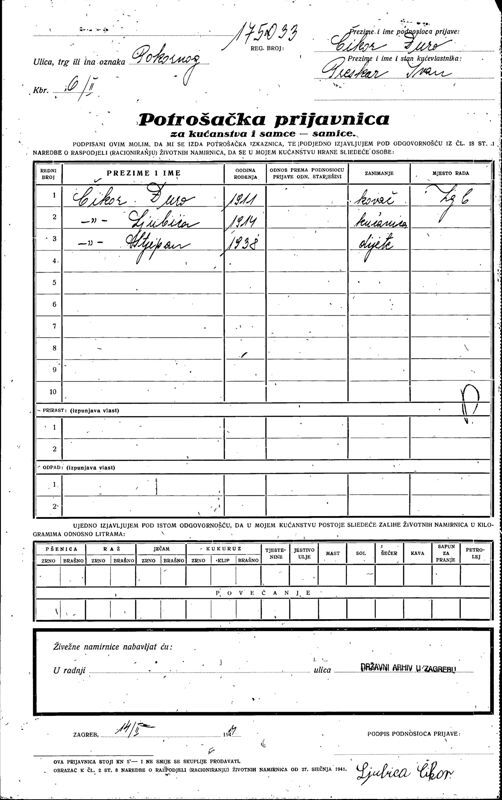 175033
REG. BROJ:
Prezime i ime podnosioca prijave:
Čikor Đuro
Ulica, trg ili ina oznaka Pokornog
Prezime i ime i stan kućevlastnika:
Preskar Ivan
Kbr. 6/II
Potrošačka prijavnica
za kućanstva i samce — samice.
PODPISANI OVIM MOLIM, DA MI SE IZDA POTROŠAČKA IZKAZNICA, TE PODJEDNO IZJAVLJUJEM POD ODGOVORNOŠĆU IZ ČL. 18 ST. 1
NAREDBE O RASPODJELI (RACIONIRANJU) ŽIVOTNIH NAMIRNICA, DA SE U MOJEM KUĆANSTVU HRANE SLJEDEĆE OSOBE:
REDNI BROJ PREZIME I IME GODINA ROĐENJA ODNOS PREMA PODNOSIOCU PRIJAVE ODN. STARJEŠINI ZANIMANJE MJESTO RADA
1 Čikor Đuro 1911 kovač Zg b
2 —„— Ljubica 1914 kućanica
3 —„— Stjepan 1938 dijete
4
5
6
7
8
9
10
PRIRAST: (izpunjava vlast)
1
2
ODPAD: (izpunjava vlast)
1
2
UJEDNO IZJAVLJUJEM POD ISTOM ODGOVORNOŠĆU, DA U MOJEM KUĆANSTVU POSTOJE SLJEDEĆE ZALIHE ŽIVOTNIH NAMIRNICA U KILO-
GRAMIMA ODNOSNO LITRAMA:
PŠENICA RAŽ JEČAM KUKURUZ TJESTE-NINE JESTIVO ULJE MAST SOL ŠEĆER KAVA SAPUN ZA PRANJE PETRO-LEJ
ZRNO BRAŠNO ZRNO BRAŠNO ZRNO BRAŠNO ZRNO KLIP BRAŠNO
POVEĆANJE
Živežne namirnice nabavljat ću:
U radnji ulica DRŽAVNI ARHIV U ZAGREBU
ZAGREB, 14/II
PODPIS PODNOSIOCA PRIJAVE:
OVA PRIJAVNICA STOJI KN 5— I NE SMIJE SE SKUPLJE PRODAVATI.
OBRAZAC K ČL. 2 ST. 8 NAREDBE O RASPODJELI (RACIONIRANJU) ŽIVOTNIH NAMIRNICA OD 27. SIEČNJA 1941.
Ljubica Čikor